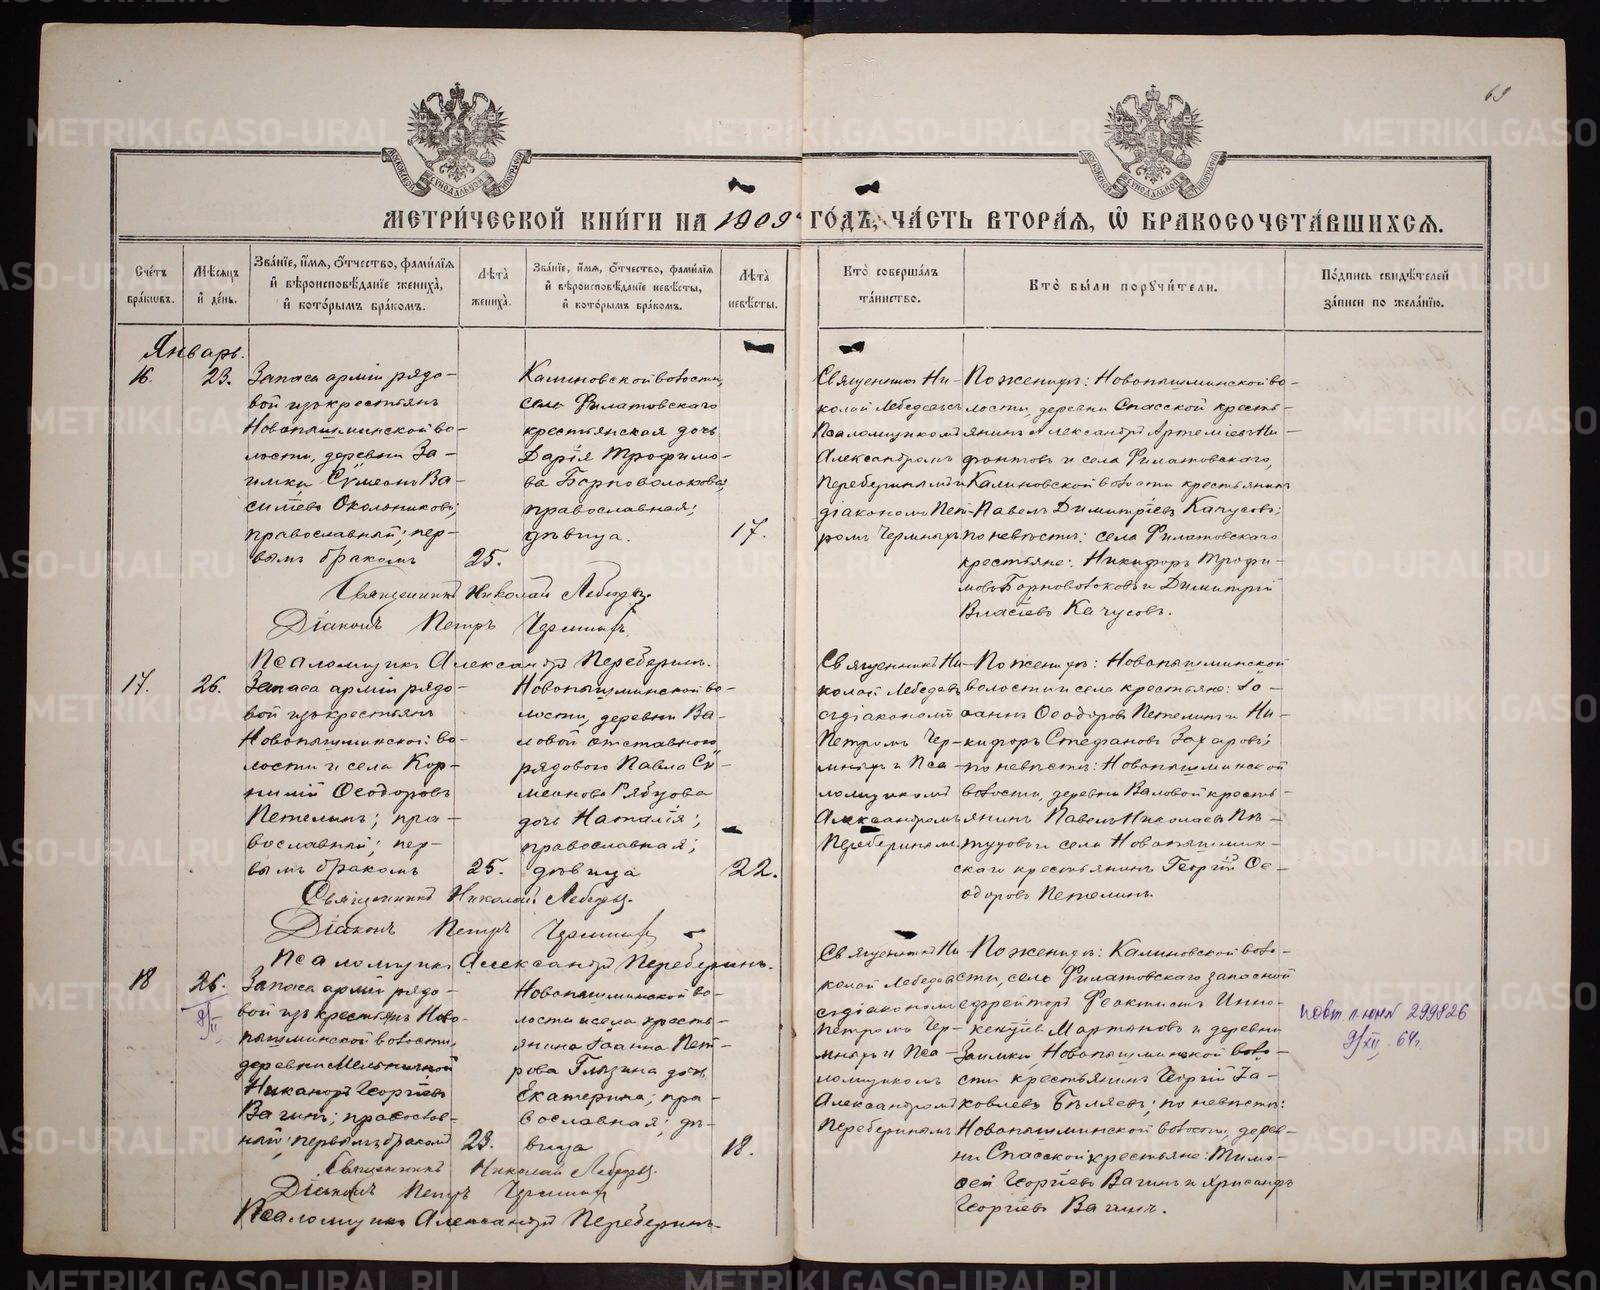 69
МОСКОВСКОЙ СѴНОДАЛЬНОЙ ТИПОГРАФІИ
МОСКОВСКОЙ СѴНОДАЛЬНОЙ ТИПОГРАФІИ
МЕТРИ́ЧЕСКОЙ КНИ́ГИ НА 1909 ГО́ДЪ, ЧА́СТЬ ВТОРА́Я, Ѽ БРАКОСОЧЕТА́ВШИХСЯ.
Сче́тъ бра́ковъ.
Мѣ́сяцъ и҆ де́нь.
Зва́нїе, и҆́мя, о҆́тчество, фами́лїя и҆ вѣроисповѣ́данїе жениха̀, и҆ кото́рымъ бра́комъ.
Лѣ́та жениха̀.
Зва́нїе, и҆́мя, о҆́тчество, фами́лїя и҆ вѣроисповѣ́данїе невѣ́сты, и҆ кото́рымъ бра́комъ.
Лѣ́та невѣ́сты.
Кто̀ соверша́лъ та́инство.
Кто̀ бы́ли поручи́тели.
По́дпись свидѣ́телей за́писи по жела́нїю.
Январь.
16.
23.
Запаса арміи рядо-
вой изъ крестьянъ
Новопышминской во-
лости, деревни За-
имки Сѵмеонъ Ва-
сильевъ Окольниковъ;
православный; пер-
вымъ бракомъ
25.
Калиновской волости,
села Филатовскаго
крестьянская дочь
Дарія Трофимо-
ва Борноволокова;
православная;
дѣвица.
17.
Священникъ Ни-
колай Лебедевъ съ
Псаломщикомъ
Александромъ
Переберинымъ и
діакономъ Пет-
ромъ Черныхъ
По женихѣ: Новопышминской во-
лости, деревни Спасской кресть-
янинъ Александръ Артеміевъ Ни-
фонтовъ и села Филатовскаго,
Калиновской волости крестьянинъ
Павелъ Димитріевъ Качусовъ;
по невѣстѣ: села Филатовскаго
крестьяне: Никифоръ Трофи-
мовъ Борноволоковъ и Димитрій
Власіевъ Качусовъ.
Священникъ Николай Лебедевъ.
Діаконъ Петръ Черныхъ
Псаломщикъ Александръ Переберинъ.
17.
26.
Запаса арміи рядо-
вой изъ крестьянъ
Новопышминской во-
лости и села Кор-
нилій Ѳеодоровъ
Петелинъ; пра-
вославный; пер-
вымъ бракомъ
25.
Новопышминской во-
лости, деревни Ва-
ловой отставного
рядового Павла Сѵ-
меонова Рябцова
дочь Наталія;
православная;
дѣвица
22.
Священникъ Ни-
колай Лебедевъ
съ діакономъ
Петромъ Чер-
ныхъ и Пса-
ломщикомъ
Александромъ
Переберинымъ
По женихѣ: Новопышминской
волости и села крестьяне: Іо-
аннъ Ѳеодоровъ Петелинъ и Ни-
кифоръ Стефановъ Захаровъ;
по невѣстѣ: Новопышминской
волости, деревни Валовой кресть-
янинъ Павелъ Николаевъ Пѣ-
туховъ и села Новопышмин-
скаго крестьянинъ Георгій Ѳе-
одоровъ Петелинъ.
Священникъ Николай Лебедевъ.
Діаконъ Петръ Черныхъ
Псаломщикъ Александръ Переберинъ.
18
26.
9/II
Запаса арміи рядо-
вой изъ крестьянъ Ново-
пышминской волости,
деревни Мельничной
Никаноръ Георгіевъ
Вагинъ; православ-
ный; первымъ бракомъ
23.
Новопышминской во-
лости и села кресть-
янина Іоанна Пет-
рова Глызина дочь
Екатерина; пра-
вославная; дѣ-
вица
18.
Священникъ Ни-
колай Лебедевъ
съ діакономъ
Петромъ Чер-
ныхъ и Пса-
ломщикомъ
Александромъ
Переберинымъ
По женихѣ: Калиновской воло-
сти, села Филатовскаго запасной
ефрейторъ Ѳеоктистъ Инно-
кентіевъ Мартыновъ и деревни
Заимки, Новопышминской воло-
сти крестьянинъ Георгій Іа-
ковлевъ Бѣляевъ; по невѣстѣ:
Новопышминской волости, дерев-
ни Спасской крестьяне: Тимо-
ѳей Георгіевъ Вагинъ и Хрисанфъ
Георгіевъ Вагинъ.
повт. 299826
9/XII 64г.
Священникъ Николай Лебедевъ.
Діаконъ Петръ Черныхъ
Псаломщикъ Александръ Переберинъ.
METRIKI.GASO-URAL.RU